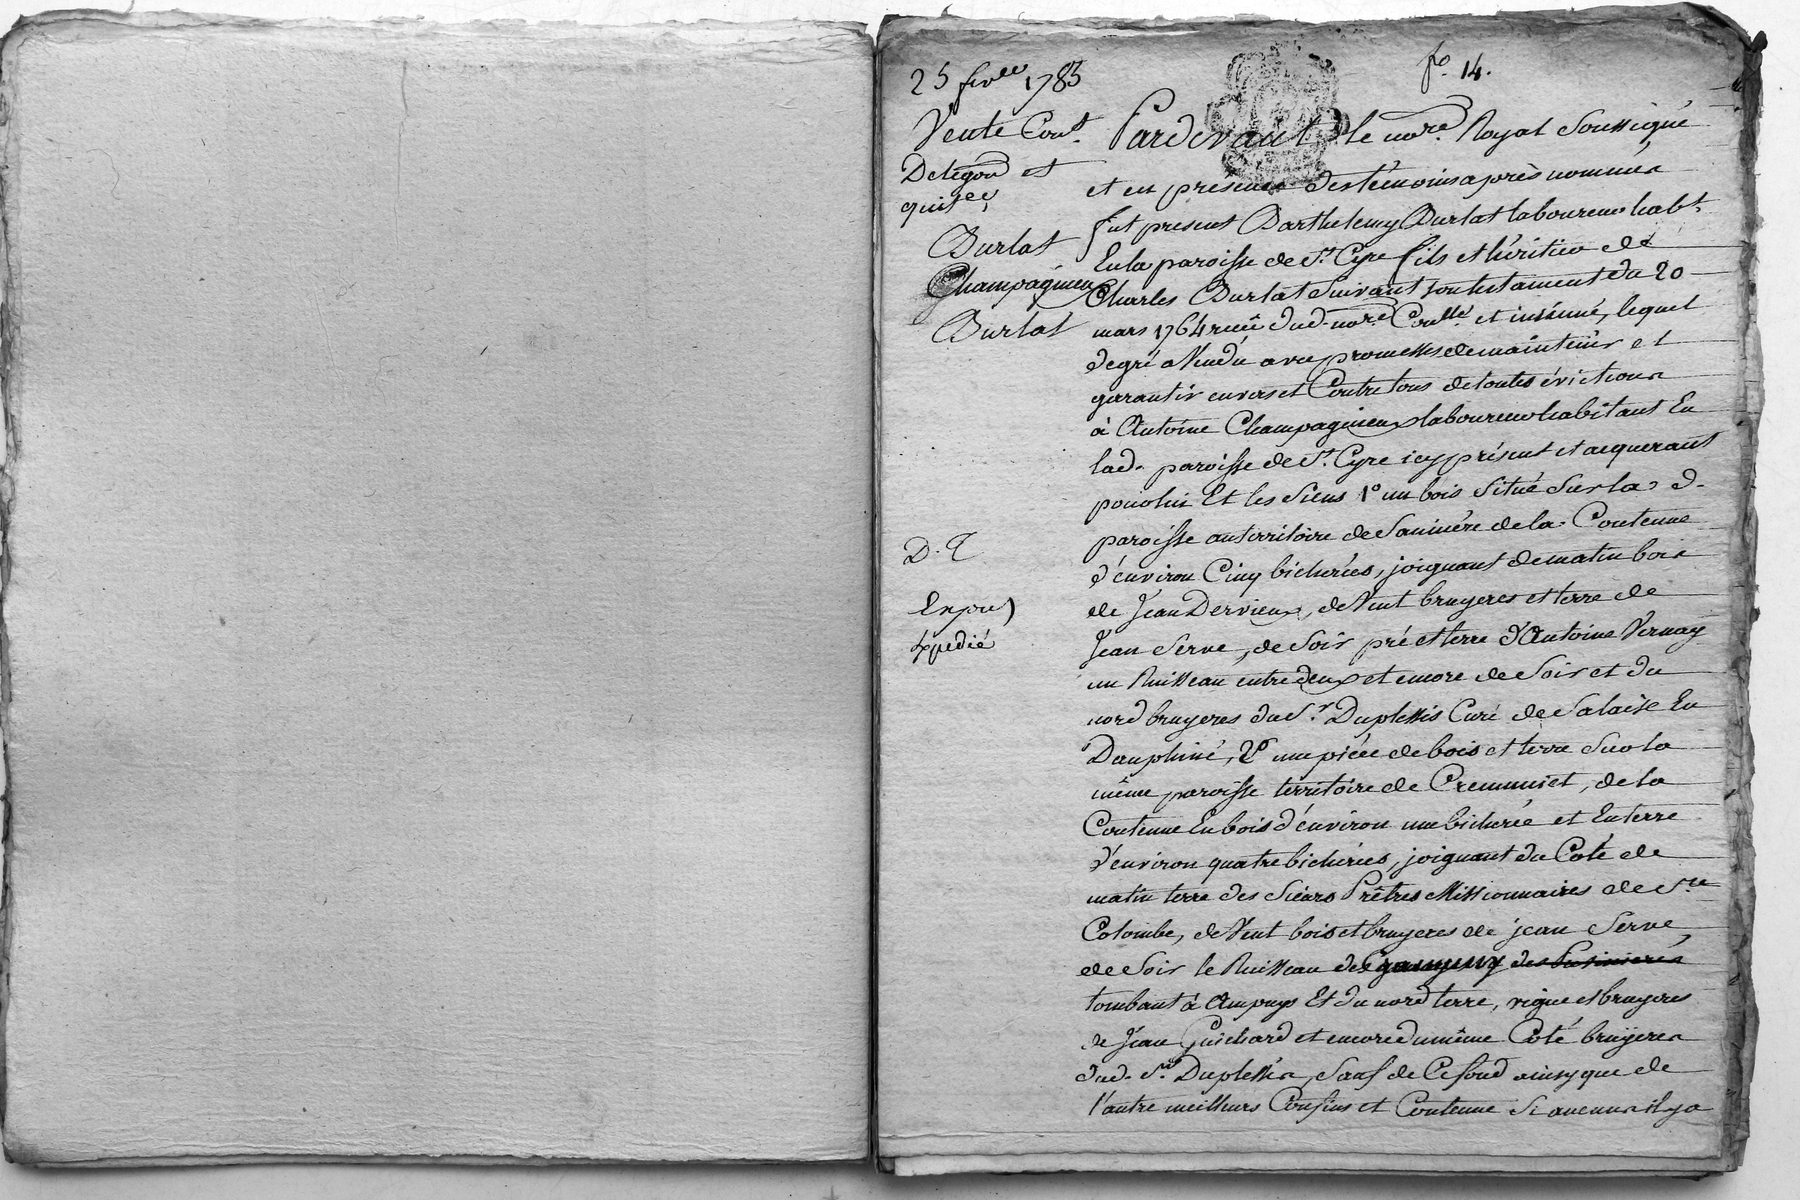 25 fevr 1783
fo. 14.
Vente Cont.
Delegon et
quit ce,
Burlat
Champagnieux
Burlat
D. q
Expedié
Pardevant le nore. Royal Soussigné
et en présence des témoins après nommés
fut present Barthelemy Burlat laboureur habt.
En la paroisse de St. Cyre fils et héritier de
Charles Burlat suivant son testament du 20
mars 1764 reçû dud. nore. Conllé. et insinué, lequel
de gré a Vendu avec promesses de maintenir et
garantir envers et Contre tous de toutes évictions
à Antoine Champagnieux laboureur habitant En
lad. paroisse de St. Cyre icy présent et acquerant
pour lui Et les Siens 1o un bois Situé Sur la d.
paroisse au territoire de de la Contenue
d'environ Cinq bicherées, joignant de matin bois
de Jean Dervieux, de Vent bruyeres et terre de
Jean Serve, de Soir pré et terre d'Antoine Vernay
un Ruisseau entre deux et encore de Soir et du
nord bruyeres du Sr. Duplessis Curé de Salaise En
Dauphiné, 2o une pièce de bois et terre Sur la
même paroisse territoire de Cremuniet, de la
Contenue En bois d'environ une bicherée et En terre
d'environ quatre bicherées, joignant du Coté de
matin terre des Sieurs Prêtres Missionnaires de Ste
Colombe, de Vent bois et bruyeres de jean Serve,
de Soir le Ruisseau des
tombant à Ampuys Et du nord terre, vigne et bruyeres
de Jean Guichard et encore du même Coté bruyeres
dud. Sr. Duplessis, Sauf de Ce fond ainsy que de
l'autre meilleurs Confins et Contenue Si aucuns il y a